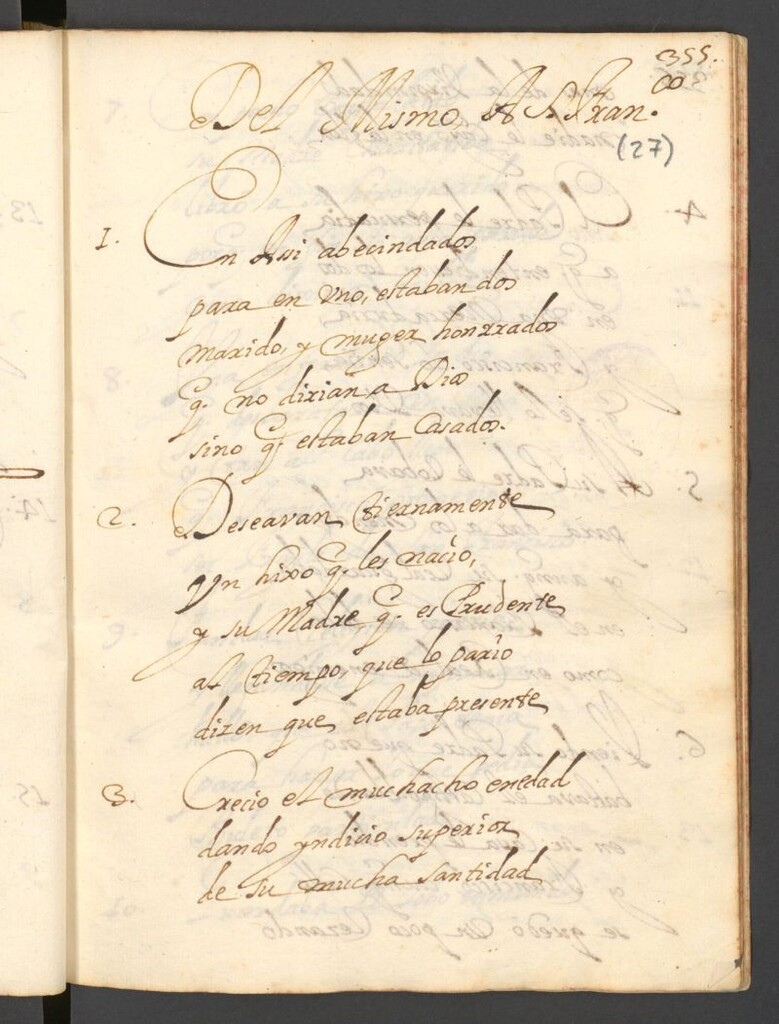 355.
Del Mismo, A S. Fran.co
(27)
1. En Asi abecindados
para en vno, estaban dos
marido, y muger honrrados
q. no dirian a Dio
sino q. estaban Casados.
2. Deseavan tiernamente
Vn hixo q. les nacio,
y su Madre q. es Prudente
al tiempo, que lo pario
dizen que estaba presente
3. Crecio el muchacho en edad
dando yndicio superior
de su mucha santidad